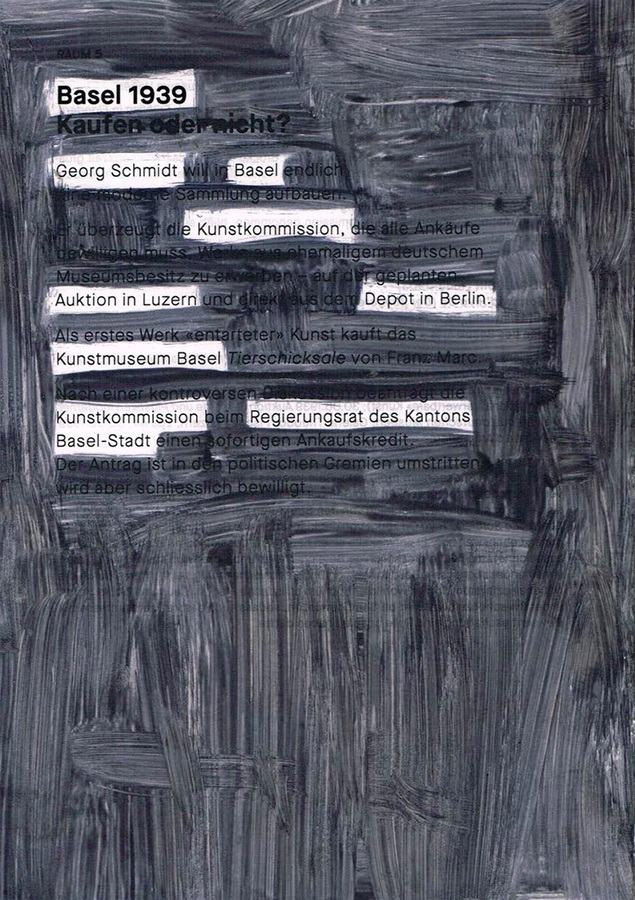 RAUM 5
Basel 1939
Kaufen oder nicht?
Georg Schmidt will in Basel endlich
eine moderne Sammlung aufbauen.
Er überzeugt die Kunstkommission, die alle Ankäufe
bewilligen muss, Werke aus ehemaligem deutschem
Museumsbesitz zu erwerben – auf der geplanten
Auktion in Luzern und direkt aus dem Depot in Berlin.
Als erstes Werk «entarteter» Kunst kauft das
Kunstmuseum Basel Tierschicksale von Franz Marc.
Nach einer kontroversen Diskussion beantragt die
Kunstkommission beim Regierungsrat des Kantons
Basel-Stadt einen sofortigen Ankaufskredit.
Der Antrag ist in den politischen Gremien umstritten,
wird aber schliesslich bewilligt.